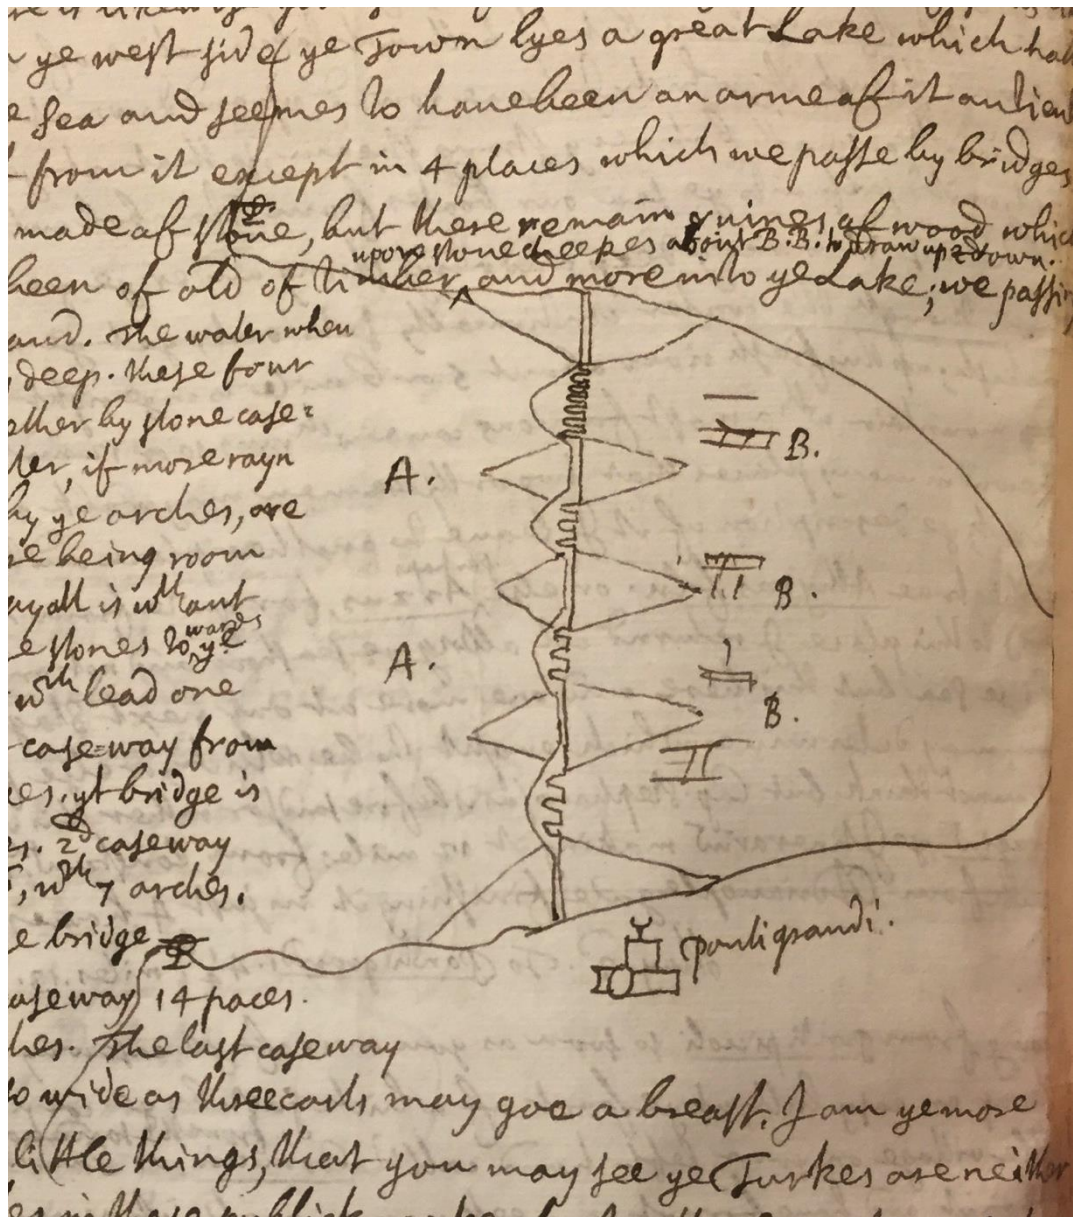 n ye west side ye Town lyes a great Lake which hath
e sea and seemes to have been an arme of it antien
from it except in 4 places which we passe by bridges
made of stone, but there remain ruines of wood which
upon stone heepes about B.B. to draw up & down.
been of old of timber and more into ye Lake; we passin
and. The water when
deep. these four
ather by stone case=
ter, if more rayn
by ye arches, are
re being room
ayall is wth out
e stones to wards ye
wth lead one
case=way from
es. yt bridge is
s. 2d caseway
, wth 7 arches.
e bridge
aseway 14 paces.
hes. The last caseway
o wide as three carts may goe a breast. I am ye more
little things, that you may see ye Turkes are neither
es in these publick
A.
B.
B.
A.
B.
ponti grandi.